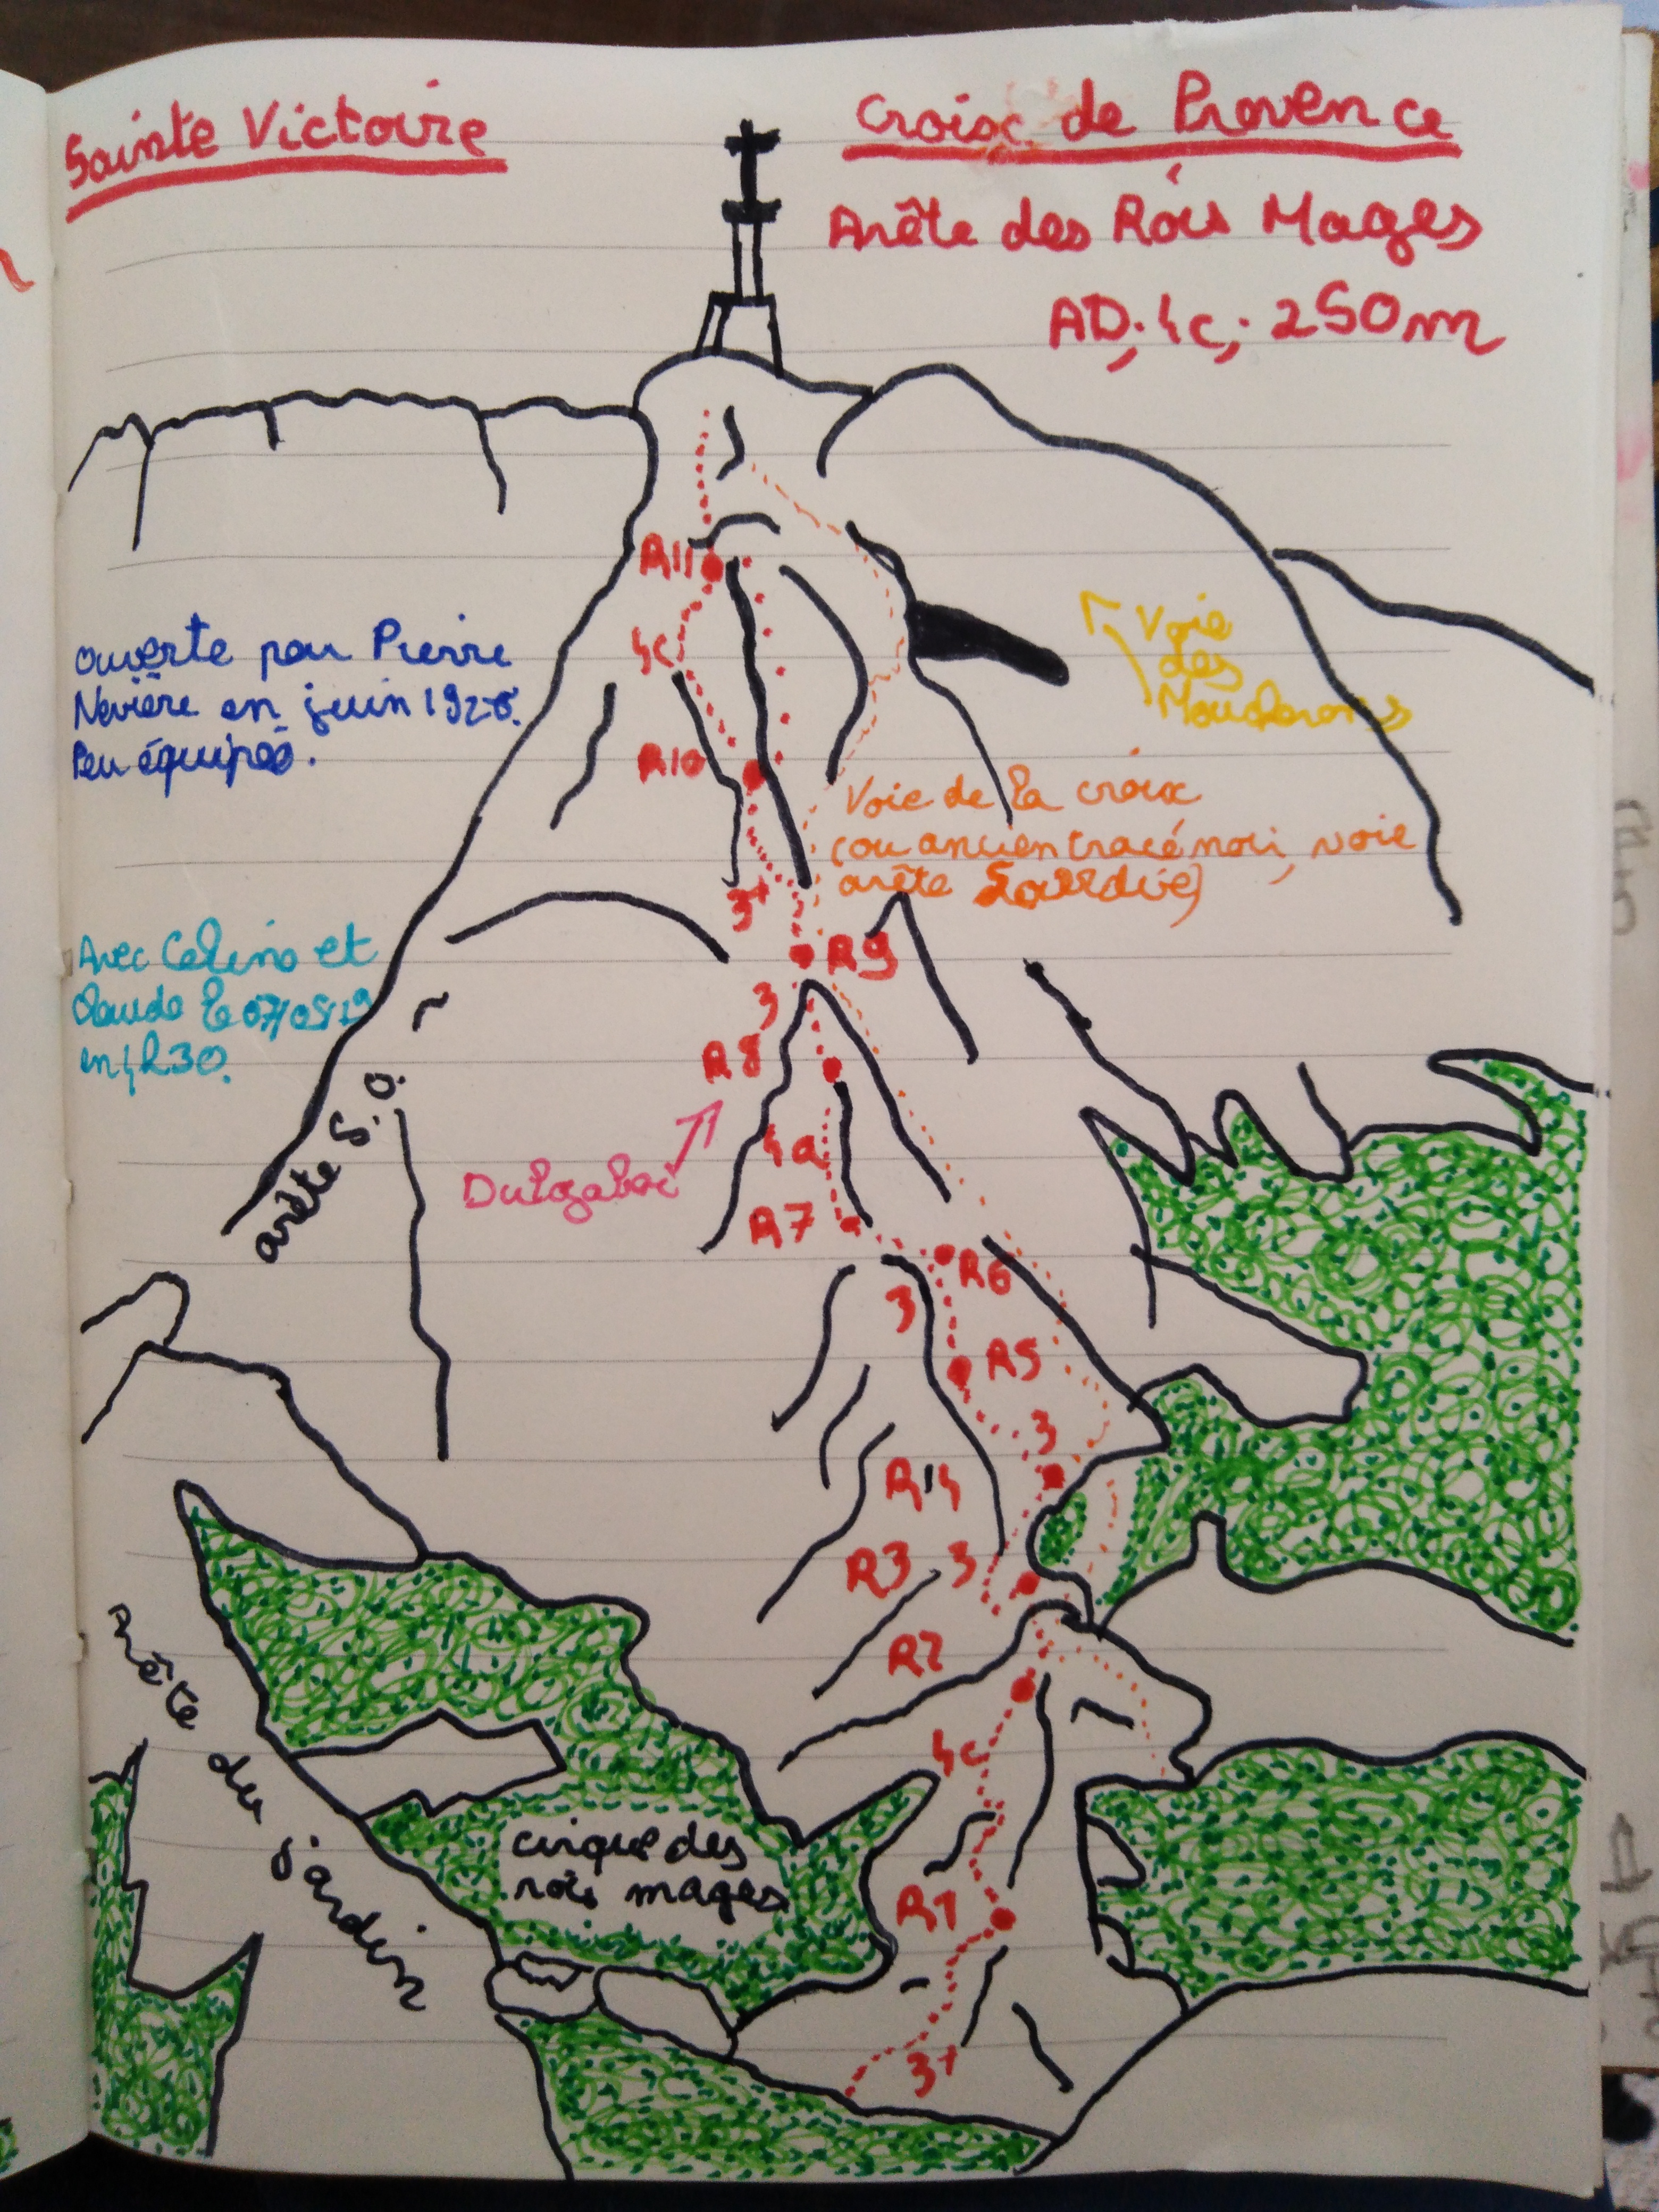 Sainte Victoire
Croix de Provence
Arête des Rois Mages
AD; 4c; 250m
R11
4c
ouverte par Pierre
Nevière en juin 1926.
Peu équipée.
Voie
des
Moucherons
R10
Voie de la croix
(ou ancien tracé noir, voie
arête
3+
R9
Avec Celino et
Claude le 07/05/19
en 4h30.
3
R8
arête S.O.
4a
Dulgaboi
R7
R6
3
R5
3
R4
R3 3
R2
arête du Jardin
4c
cirque des
rois mages
R1
3+